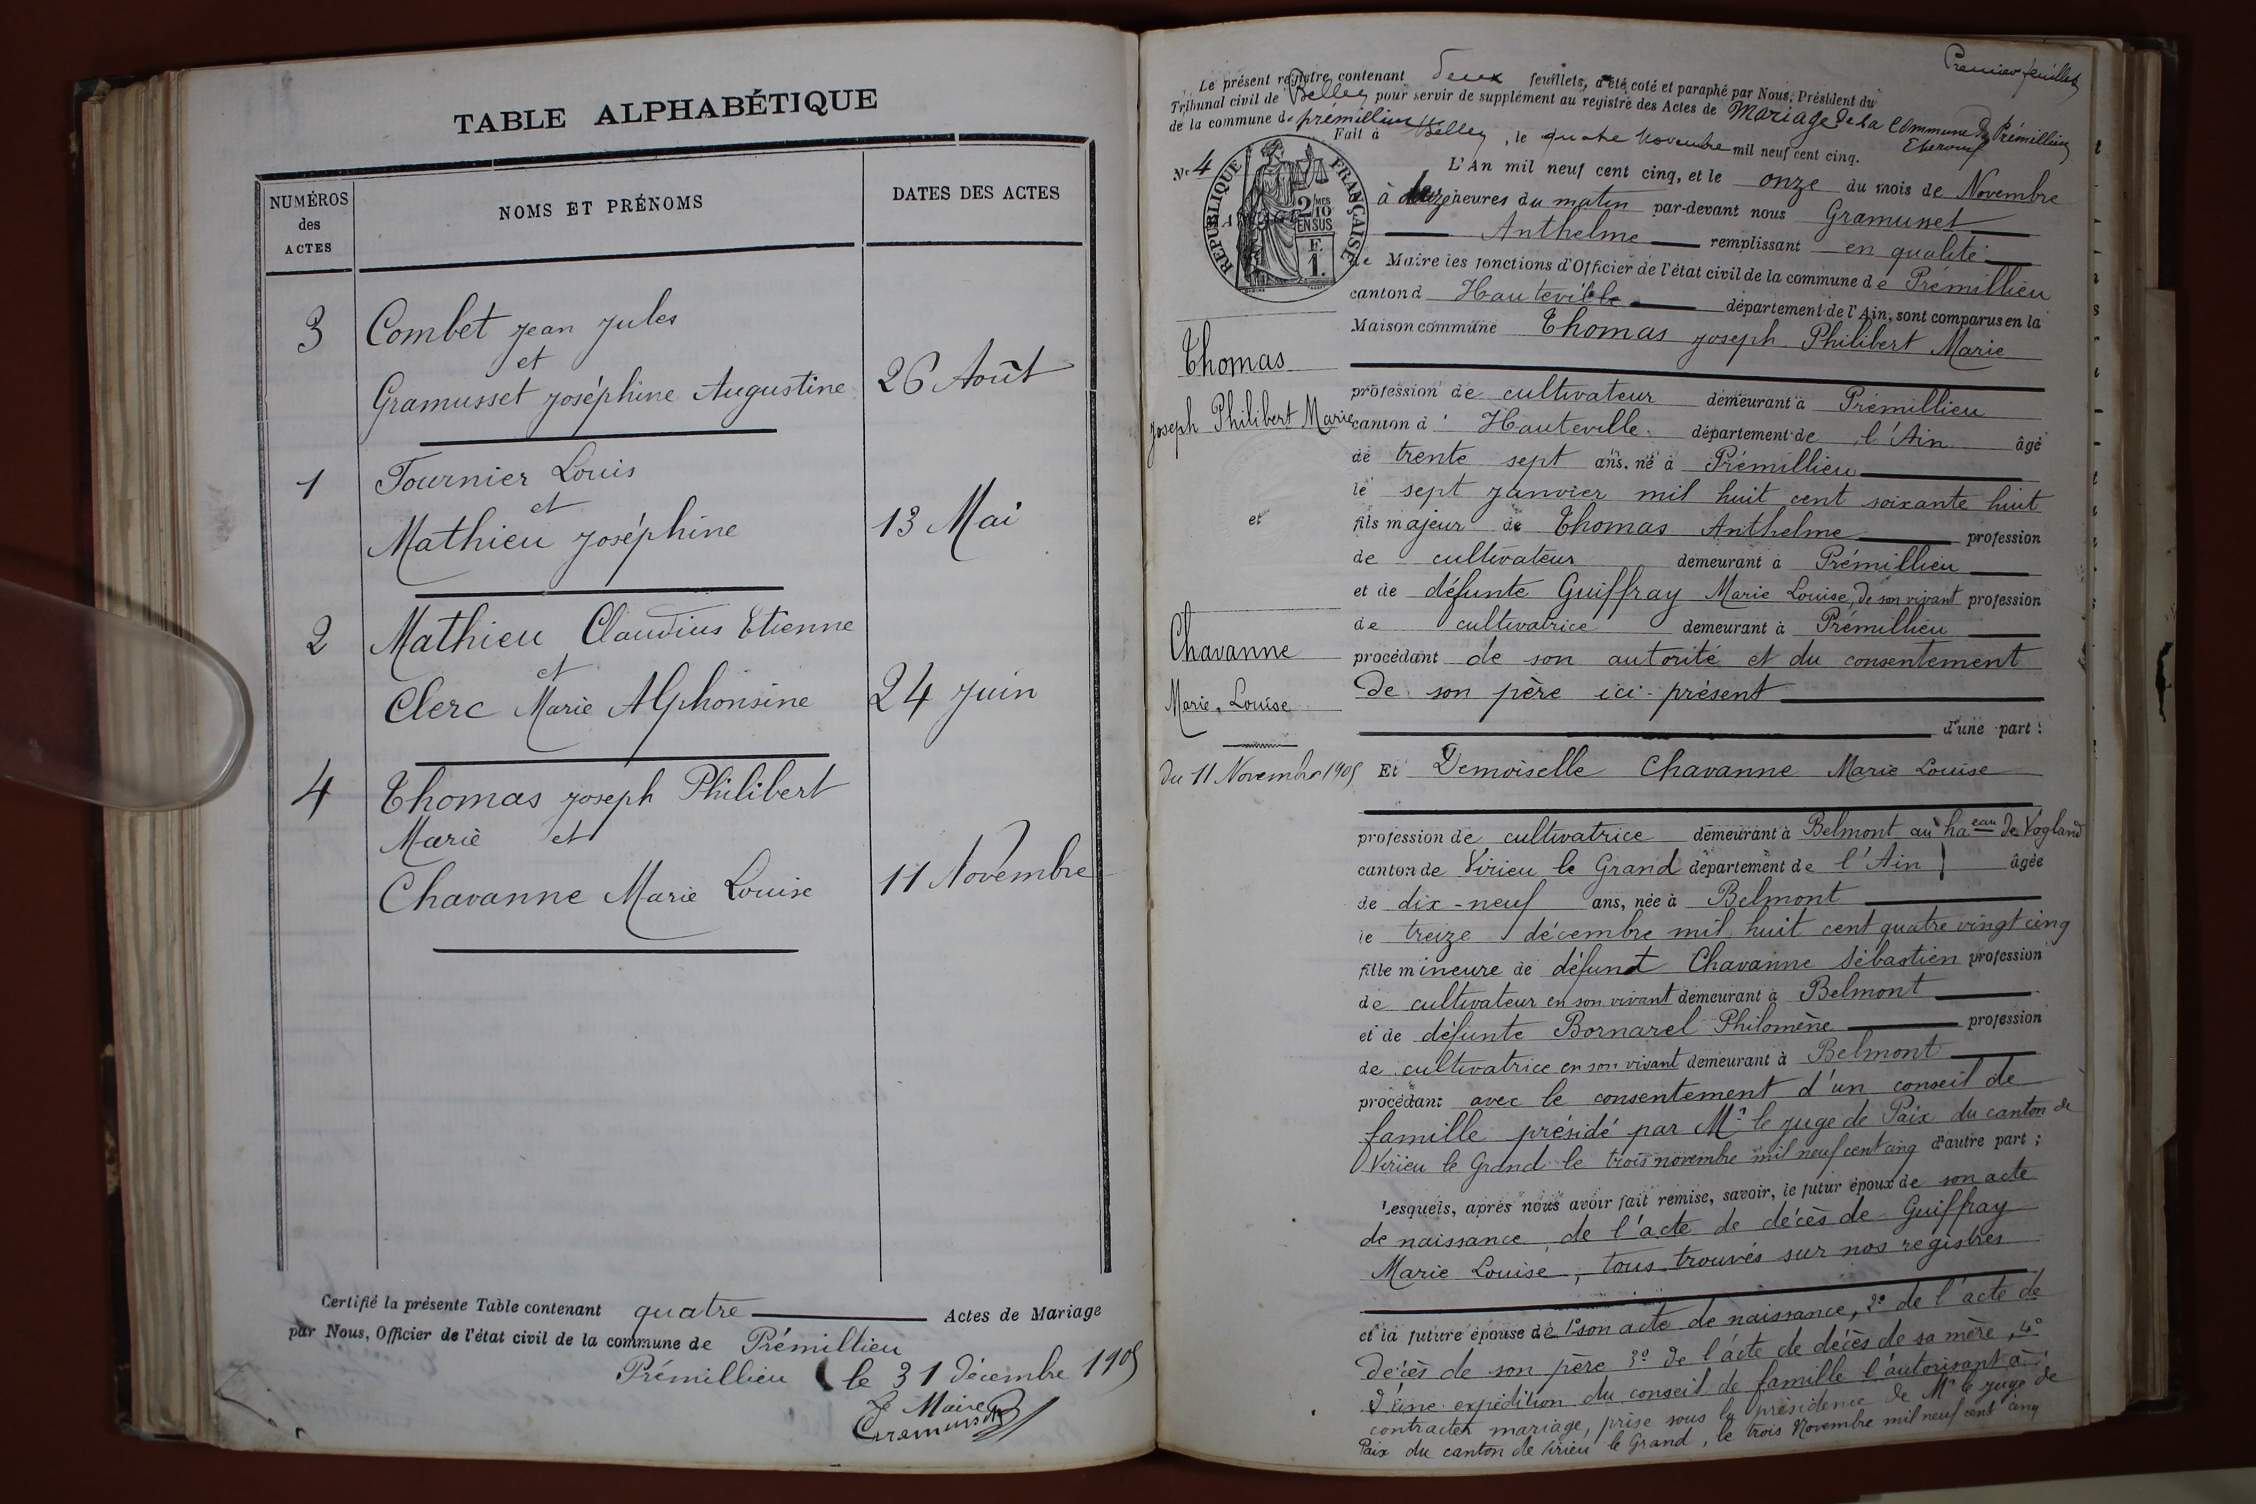 TABLE ALPHABÉTIQUE
NUMÉROS des ACTES
NOMS ET PRÉNOMS
DATES DES ACTES
3 Combet Jean Jules
et
Gramusset Joséphine Augustine 26 Août
1 Fournier Louis
et
Mathieu Joséphine 13 Mai
2 Mathieu Claudius Etienne
et
Clerc Marie Alphonsine 24 Juin
4 Thomas Joseph Philibert
Marie et
Chavanne Marie Louise 11 Novembre
Certifié la présente Table contenant quatre Actes de Mariage
par Nous, Officier de l'état civil de la commune de Prémillieu
Prémillieu le 31 décembre 1905
Le Maire
Gramusset
Premier feuillet
Le présent registre contenant deux feuillets, a été coté et paraphé par Nous, Président du
Tribunal civil de Belley pour servir de supplément au registre des Actes de Mariage de la Commune de Prémillieu
de la commune de prémillieu
Fait à Belley, le quatre Novembre mil neuf cent cinq.
No 4
RÉPUBLIQUE FRANÇAISE
2/10 MES EN SUS
F. 1.
L'An mil neuf cent cinq, et le onze du mois de Novembre
à heures du matin par-devant nous Gramusset
Anthelme remplissant en qualité
de Maire les fonctions d'Officier de l'état civil de la commune de Prémillieu
canton d Hauteville département de l'Ain, sont comparus en la
Maison commune Thomas Joseph Philibert Marie
Thomas
Joseph Philibert Marie
et
Chavanne
Marie, Louise
du 11 Novembre 1905
profession de cultivateur demeurant à Prémillieu
canton d' Hauteville département de l'Ain âgé
de trente sept ans, né à Prémillieu
le sept Janvier mil huit cent soixante huit
fils majeur de Thomas Anthelme profession
de cultivateur demeurant à Prémillieu
et de défunte Guiffray Marie Louise, de son vivant profession
de cultivatrice demeurant à Prémillieu
procédant de son autorité et du consentement
de son père ici-présent
d'une part :
Et Demoiselle Chavanne Marie Louise
profession de cultivatrice demeurant à Belmont au haeau de Vogland
canton de Virieu le Grand département de l'Ain âgée
de dix-neuf ans, née à Belmont
le treize décembre mil huit cent quatre vingt cinq
fille mineure de défunt Chavanne Sébastien profession
de cultivateur en son vivant demeurant à Belmont
et de défunte Bornarel Philomène profession
de cultivatrice en son vivant demeurant à Belmont
procédant avec le consentement d'un conseil de
famille présidé par Mr le Juge de Paix du canton de
Virieu le Grand le trois novembre mil neuf cent cinq d'autre part ;
Lesquels, après nous avoir fait remise, savoir, le futur époux de son acte
de naissance, de l'acte de décès de Guiffray
Marie Louise, tous trouvés sur nos registres
et la future épouse de 1o son acte de naissance, 2o de l'acte de
décès de son père 3o de l'acte de décès de sa mère, 4o
d'une expédition du conseil de famille l'autorisant à
contracter mariage, prise sous la présidence de Mr le Juge de
Paix du canton de Virieu le Grand, le trois Novembre mil neuf cent cinq